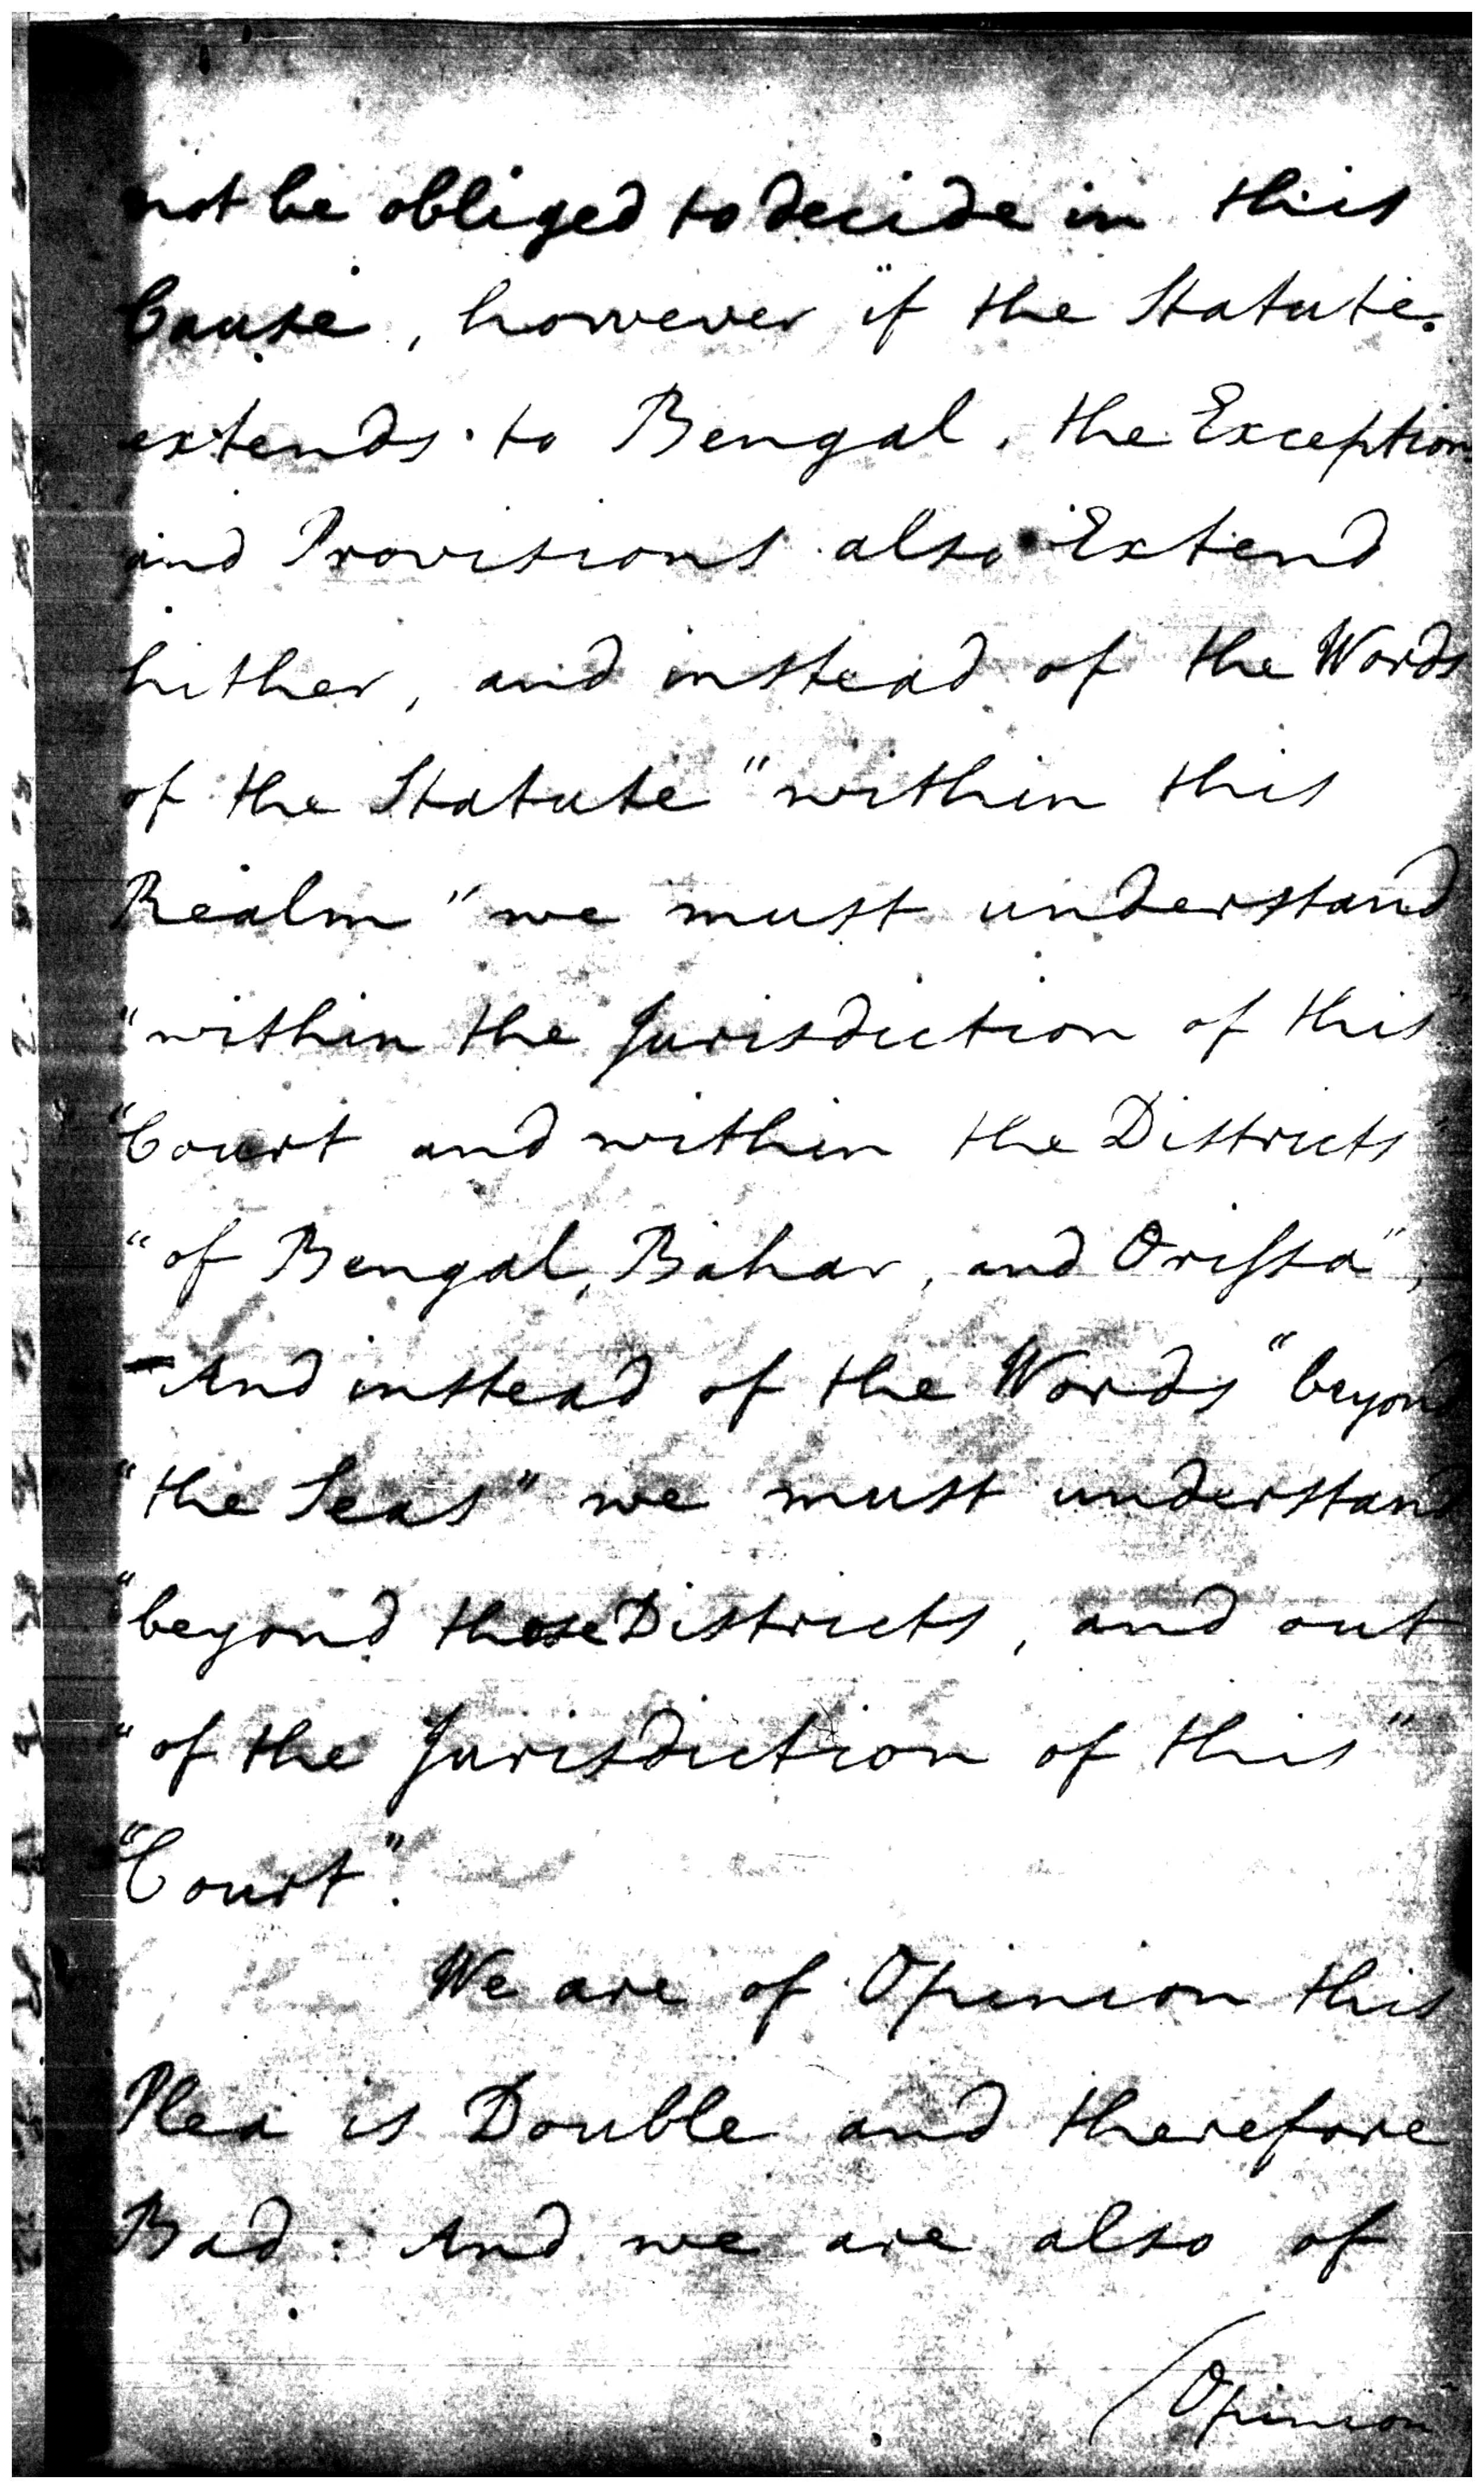 not be obliged to decide in this
Cause, however if the Statute
extends to Bengal, the Exception
and Provisions also Extend
hither, and instead of the Words
of the Statute "within this
Realm" we must understand
"within the Jurisdiction of this
"Court and within the Districts
"of Bengal, Bahar, and Orissa",
And instead of the Words "beyond
"the Seas" we must understand
"beyond those Districts, and out
"of the Jurisdiction of this"
"Court".
We are of Opinion this
Plea is Double and therefore
Bad. And we are also of
/Opinion